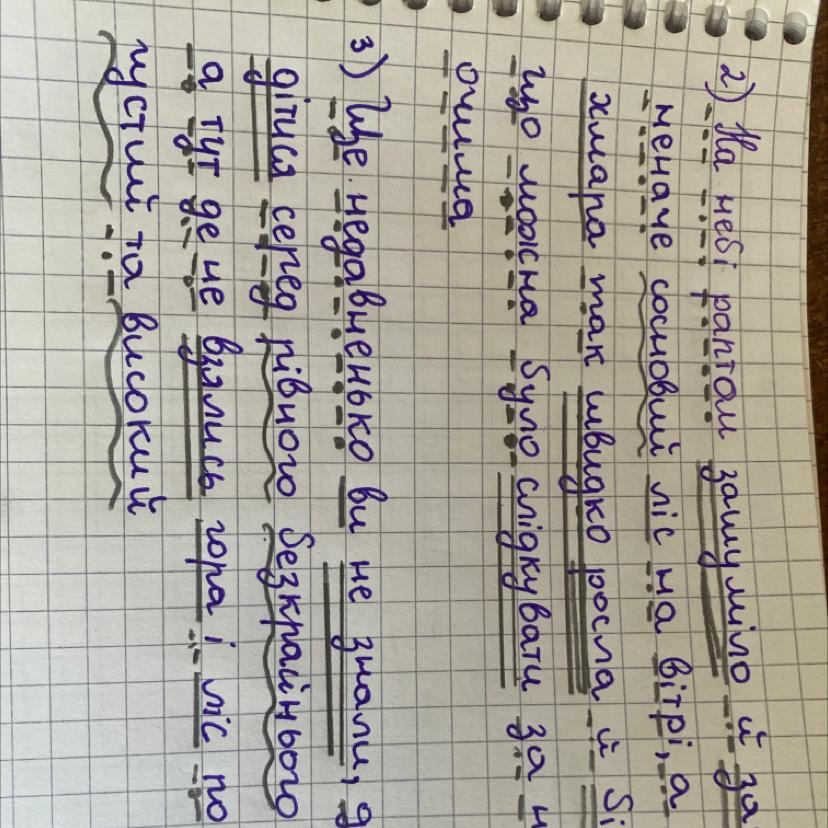 2) На небі раптом зашуміло й за
неначе сосновий ліс на вітрі, а
хмара так швидко росла й бі
що можна було слідкувати за н
очима
3) Ще недавненько ви не знали, д
дітися серед рівного безкрайнього
а тут де не взялись гора і ліс по
густий та високий